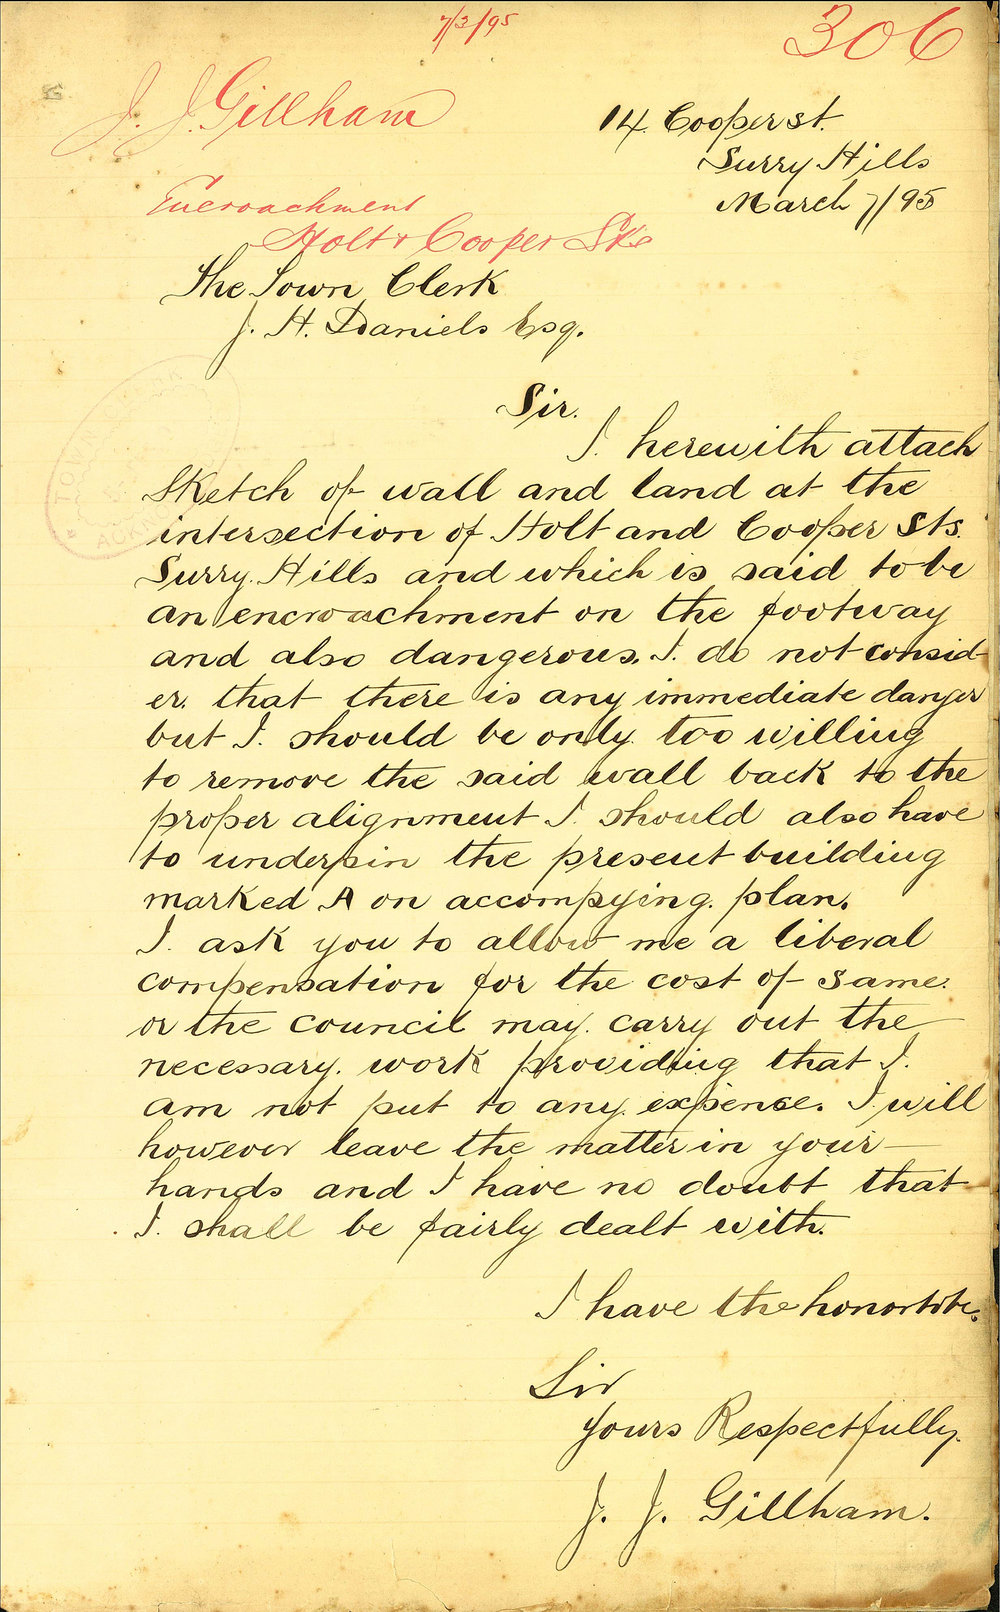 7/3/95
306
J. J. Gillham
14 Cooper st.
Surry Hills
March 7/95
Encroachment
Holt & Cooper Sts
The Town Clerk
J. H. Daniels Esq.
Sir.
I. herewith attach
Sketch of wall and land at the
intersection of Holt and Cooper Sts.
Surry. Hills and which is said to be
an encroachment on the footway
and also dangerous. I. do not consid-
er. that there is any immediate danger
but I. should be only too willing
to remove the said wall back to the
proper alignment I. should also have
to underpin the present building
marked A on accompying. plan.
I. ask you to allow me a liberal
compensation for the cost of same.
or the council may. carry out the
necessary. work providing that I.
am not put to any. expense. I. will
however leave the matter in your
hands and I have no doubt that
I. shall be fairly dealt with.
I have the honor to be.
Sir
Yours Respectfully.
J. J. Gillham.
TOWN